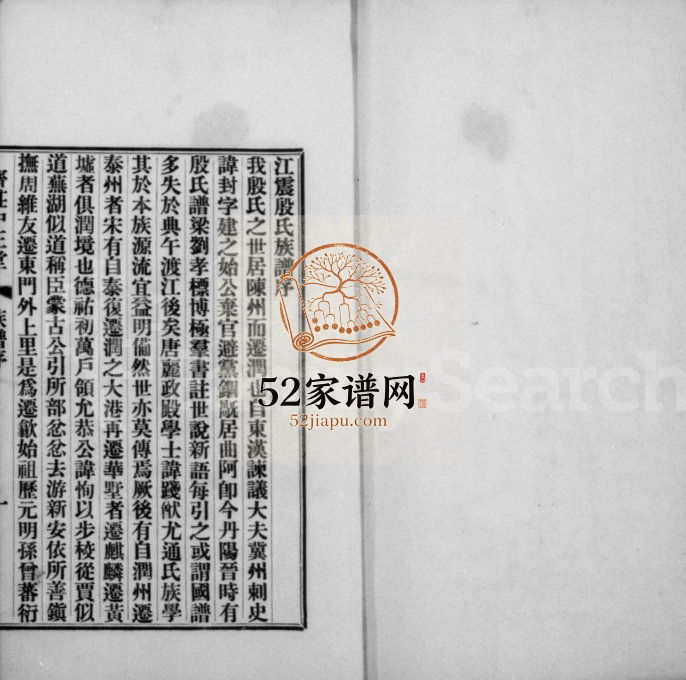 江震殷氏族譜序
我殷氏之世居陳州而遷潤也自東漢諫議大夫冀州刺史
諱封字建之始公棄官避黨錮厩居曲阿卽今丹陽晉時有
殷氏譜梁劉孝標博極羣書註世說新語每引之或謂國譜
多失於典午渡江後矣唐麗政殿學士諱踐猷尤通氏族學
其於本族源流宜益明備然世亦莫傳焉厥後有自潤州遷
泰州者宋有自泰復遷潤之大港再遷華墅者遷麒麟遷黃
墟者俱潤境也德祐初萬戶領尤恭公諱恂以步棱從賈似
道蕪湖似道稱臣蒙古公引所部忿忿去游新安依所善鎭
撫周維友遷東門外上里是爲遷歙始祖歷元明孫曾蕃衍
族譜序
一
52家谱网
52jiapu.com
Search